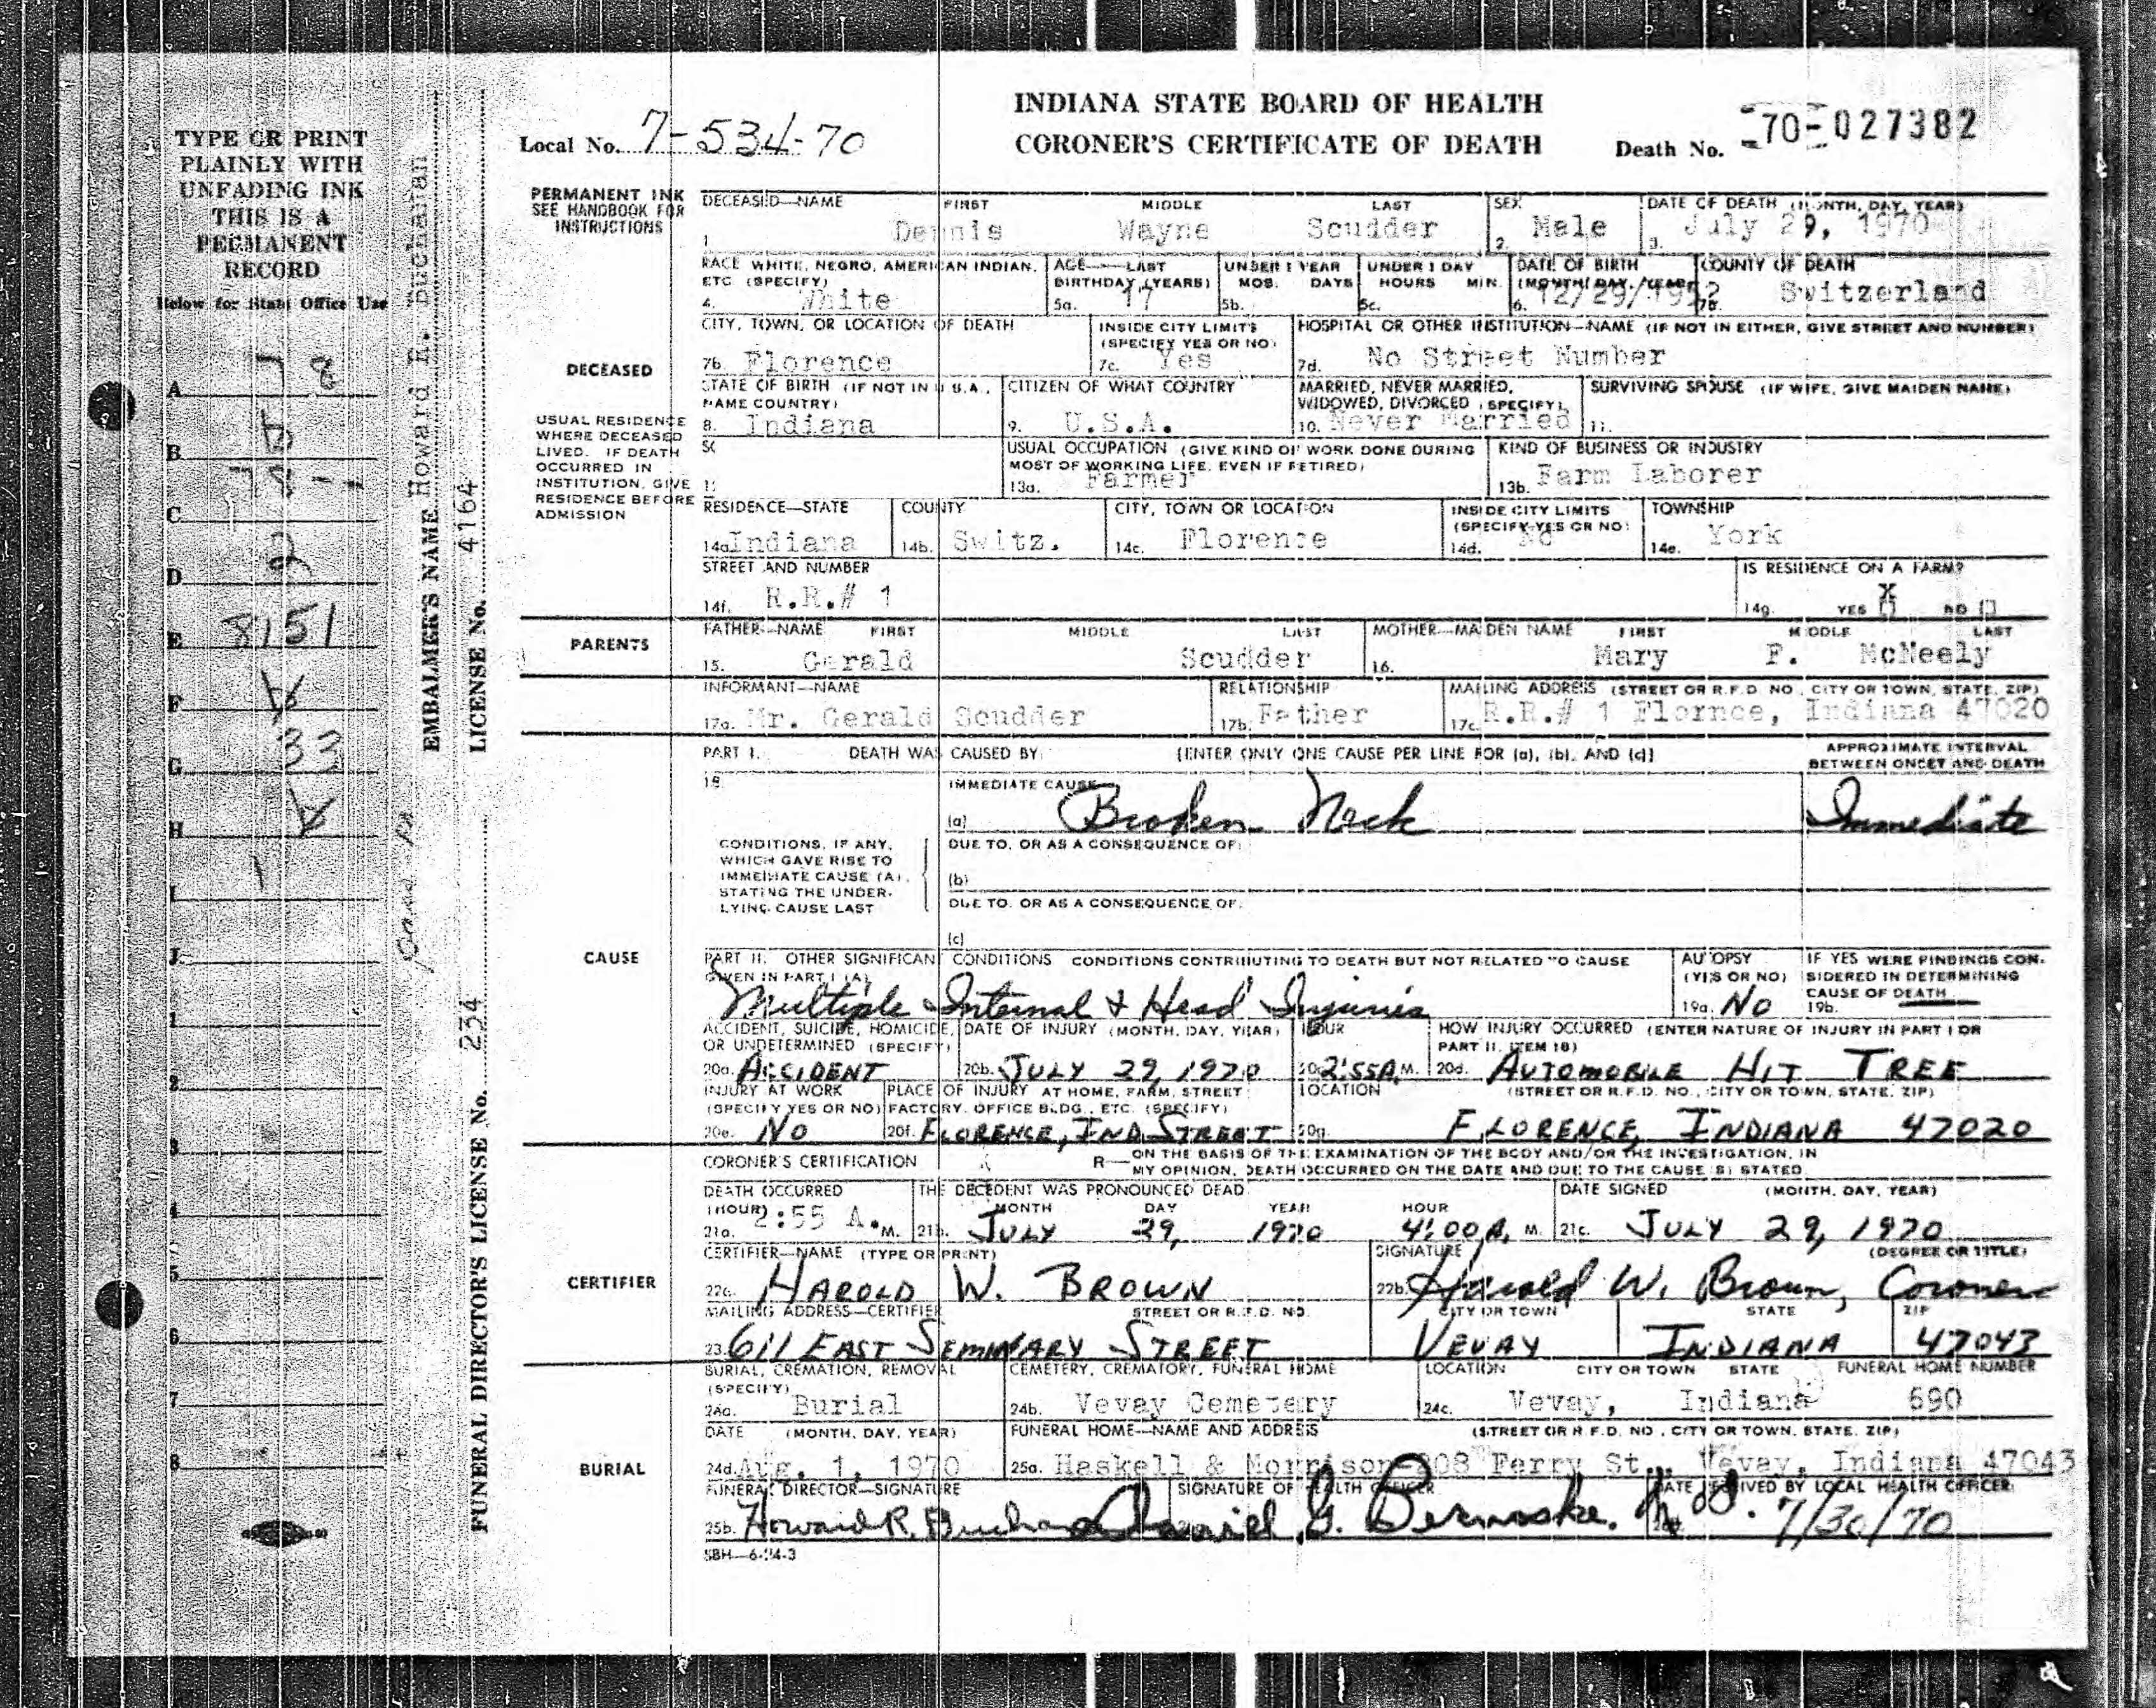 INDIANA STATE BOARD OF HEALTH
CORONER'S CERTIFICATE OF DEATH
Local No. 7-534-70
Death No. 70-027382
TYPE OR PRINT
PLAINLY WITH
UNFADING INK
THIS IS A
PERMANENT
RECORD
Below for State Office Use
A 7 8
B
C
D 2
E 8151
F
G 33
H
I 1
J
1
2
3
4
5
6
7
8
EMBALMER'S NAME Howard R. Buchanan
LICENSE No. 4164
FUNERAL DIRECTOR'S LICENSE No. 234
PERMANENT INK
SEE HANDBOOK FOR
INSTRUCTIONS
DECEASED
USUAL RESIDENCE
WHERE DECEASED
LIVED. IF DEATH
OCCURRED IN
INSTITUTION, GIVE
RESIDENCE BEFORE
ADMISSION
DECEASED—NAME FIRST MIDDLE LAST SEX DATE OF DEATH (MONTH, DAY, YEAR)
1 Dennis Wayne Scudder 2. Male 3. July 29, 1970
RACE WHITE, NEGRO, AMERICAN INDIAN, AGE—LAST UNDER 1 YEAR UNDER 1 DAY DATE OF BIRTH COUNTY OF DEATH
ETC (SPECIFY) BIRTHDAY (YEARS) MOS. DAYS HOURS MIN. (MONTH, DAY, YEAR)
4. White 5a. 17 5b. 5c. 6. 12/29/1952 7a. Switzerland
CITY, TOWN, OR LOCATION OF DEATH INSIDE CITY LIMITS HOSPITAL OR OTHER INSTITUTION—NAME (IF NOT IN EITHER, GIVE STREET AND NUMBER)
(SPECIFY YES OR NO)
7b. Florence 7c. Yes 7d. No Street Number
STATE OF BIRTH (IF NOT IN U.S.A., CITIZEN OF WHAT COUNTRY MARRIED, NEVER MARRIED, SURVIVING SPOUSE (IF WIFE, GIVE MAIDEN NAME)
NAME COUNTRY) WIDOWED, DIVORCED (SPECIFY)
8. Indiana 9. U.S.A. 10. Never Married 11.
USUAL OCCUPATION (GIVE KIND OF WORK DONE DURING KIND OF BUSINESS OR INDUSTRY
MOST OF WORKING LIFE, EVEN IF RETIRED)
13a. Farmer 13b. Farm Laborer
RESIDENCE—STATE COUNTY CITY, TOWN OR LOCATION INSIDE CITY LIMITS TOWNSHIP
(SPECIFY YES OR NO)
14a. Indiana 14b. Switz. 14c. Florence 14d. No 14e. York
STREET AND NUMBER IS RESIDENCE ON A FARM?
14f. R.R.# 1 14g. YES X NO
PARENTS
FATHER—NAME FIRST MIDDLE LAST MOTHER—MAIDEN NAME FIRST MIDDLE LAST
15. Gerald Scudder 16. Mary F. McNeely
INFORMANT—NAME RELATIONSHIP MAILING ADDRESS (STREET OR R.F.D. NO., CITY OR TOWN, STATE, ZIP)
17a. Mr. Gerald Scudder 17b. Father 17c. R.R.# 1 Flornce, Indiana 47020
PART I. DEATH WAS CAUSED BY: [ENTER ONLY ONE CAUSE PER LINE FOR (a), (b), AND (c)] APPROXIMATE INTERVAL
BETWEEN ONSET AND DEATH
18 IMMEDIATE CAUSE
(a) Broken Neck Immediate
CONDITIONS, IF ANY,
WHICH GAVE RISE TO
IMMEDIATE CAUSE (A),
STATING THE UNDER-
LYING CAUSE LAST
DUE TO, OR AS A CONSEQUENCE OF:
(b)
DUE TO, OR AS A CONSEQUENCE OF:
(c)
CAUSE
PART II. OTHER SIGNIFICANT CONDITIONS CONDITIONS CONTRIBUTING TO DEATH BUT NOT RELATED TO CAUSE AUTOPSY IF YES WERE FINDINGS CON-
GIVEN IN PART I (A) (YES OR NO) SIDERED IN DETERMINING
CAUSE OF DEATH
Multiple Internal & Head Injuries 19a. No 19b.
ACCIDENT, SUICIDE, HOMICIDE, DATE OF INJURY (MONTH, DAY, YEAR) HOUR HOW INJURY OCCURRED (ENTER NATURE OF INJURY IN PART I OR
OR UNDETERMINED (SPECIFY) PART II, ITEM 18)
20a. ACCIDENT 20b. JULY 29, 1970 20c. 2:55 A. M. 20d. AUTOMOBILE HIT TREE
INJURY AT WORK PLACE OF INJURY AT HOME, FARM, STREET LOCATION (STREET OR R.F.D. NO., CITY OR TOWN, STATE, ZIP)
(SPECIFY YES OR NO) FACTORY, OFFICE BLDG., ETC. (SPECIFY)
20e. No 20f. FLORENCE, IND. STREET 20g. FLORENCE, INDIANA 47020
CORONER'S CERTIFICATION ON THE BASIS OF THE EXAMINATION OF THE BODY AND/OR THE INVESTIGATION, IN
MY OPINION, DEATH OCCURRED ON THE DATE AND DUE TO THE CAUSE(S) STATED
DEATH OCCURRED THE DECEDENT WAS PRONOUNCED DEAD DATE SIGNED (MONTH, DAY, YEAR)
(HOUR) MONTH DAY YEAR HOUR
21a. 2:55 A. M. 21b. JULY 29, 1970 4:00 A. M. 21c. JULY 29, 1970
CERTIFIER
CERTIFIER—NAME (TYPE OR PRINT) SIGNATURE (DEGREE OR TITLE)
22a. HAROLD W. BROWN 22b. Harold W. Brown, Coroner
MAILING ADDRESS—CERTIFIER STREET OR R.F.D. NO. CITY OR TOWN STATE ZIP
23. 611 EAST SEMINARY STREET VEVAY INDIANA 47043
BURIAL, CREMATION, REMOVAL CEMETERY, CREMATORY, FUNERAL HOME LOCATION CITY OR TOWN STATE FUNERAL HOME NUMBER
(SPECIFY)
24a. Burial 24b. Vevay Cemetery 24c. Vevay, Indiana 690
BURIAL
DATE (MONTH, DAY, YEAR) FUNERAL HOME—NAME AND ADDRESS (STREET OR R.F.D. NO., CITY OR TOWN, STATE, ZIP)
24d. Aug. 1, 1970 25a. Haskell & Morrison 208 Ferry St., Vevay, Indiana 47043
FUNERAL DIRECTOR—SIGNATURE SIGNATURE OF HEALTH OFFICER DATE RECEIVED BY LOCAL HEALTH OFFICER
25b. Howard R. Buchanan 7/30/70
SBH—6-24-3